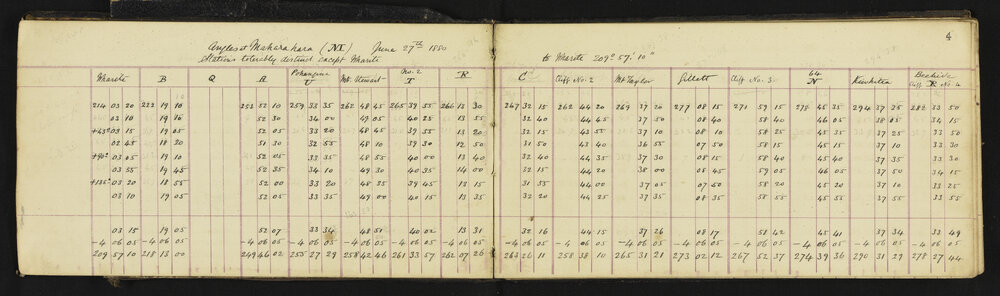 4
Angles at Maharahara (M) June 27th 1880 to Wharite 209° 57' 10"
Stations tolerably distinct except Wharite
Wharite B Q A Pohangina U Mt. Stewart No. 2 T R C Cliff No. 2 Mt Taylor Gillett Cliff No. 3 64 N Kawhatea Beehive Cliff R No. 4
214 03 20 222 19 10 253 52 10 259 33 35 262 48 45 265 39 55 266 13 30 267 32 15 262 44 20 269 37 20 277 08 15 271 59 15 278 45 35 294 37 25 282 33 50
03 10 19 15 52 30 34 00 49 05 40 25 13 55 32 40 44 45 37 50 08 40 58 40 46 05 38 05 34 15
+45° 03 15 19 05 52 05 33 20 48 45 39 55 13 20 32 15 43 55 37 10 08 10 58 25 45 35 37 25 33 50
02 45 18 20 51 30 32 55 48 10 39 30 12 50 31 50 43 40 36 55 07 50 58 15 45 15 37 10 33 25
+90° 03 05 19 10 52 05 33 35 48 55 40 00 13 40 32 40 44 35 37 30 08 15 58 40 45 40 37 35 33 30
03 55 19 45 52 35 34 10 49 30 40 35 14 00 32 15 44 20 38 00 08 45 59 05 46 05 37 50 34 15
+135° 03 20 18 55 52 00 33 20 48 35 39 45 13 15 31 55 44 00 37 05 07 50 58 20 45 20 37 10 33 25
03 10 19 05 52 05 33 35 49 00 40 15 13 35 32 20 44 25 37 35 08 35 58 20 45 55 37 55 33 55
03 15 19 05 52 07 33 34 48 51 40 02 13 31 32 16 44 15 37 26 08 17 58 42 45 41 37 34 33 49
-4 06 05 -4 06 05 -4 06 05 -4 06 05 -4 06 05 -4 06 05 -4 06 05 -4 06 05 -4 06 05 -4 06 05 -4 06 05 -4 06 05 -4 06 05 -4 06 05 -4 06 05
209 57 10 218 13 00 249 46 02 255 27 29 258 42 46 261 33 57 262 07 26 263 26 11 258 38 10 265 31 21 273 02 12 267 52 37 274 39 36 290 31 29 278 27 44